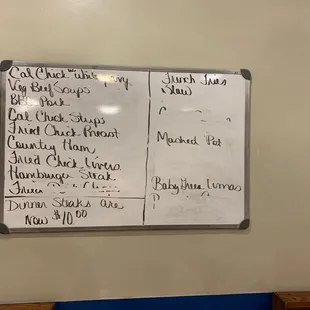 Cal Chick w/ White Gvy
Veg Beef Soups
BBQ Pork
Cal Chick Strips
Fried Chick Breast
Country Ham
Fried Chick Livers
Hamburger Steak
Dinner Steaks are
Now $10.00
French Fries
Slaw
Mashed Pot
Baby Green Limas